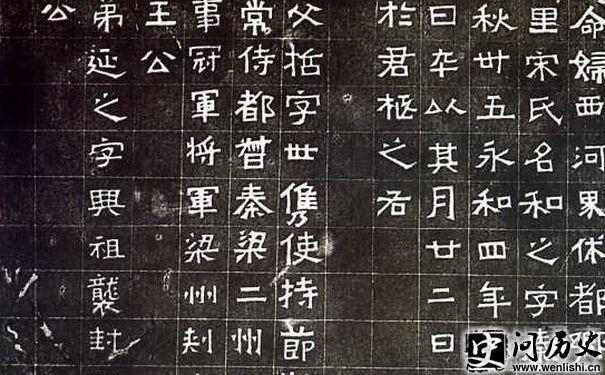 命婦西河界休都
里宋氏名和之字
秋卅五永和四年
日卒以其月廿二日
於君柩之右
父哲字世儁使持節
常侍都督秦梁二州
事冠軍將軍梁州刾
王公
弟延之字興祖襲封
公
问历史
www.wenlishi.cn